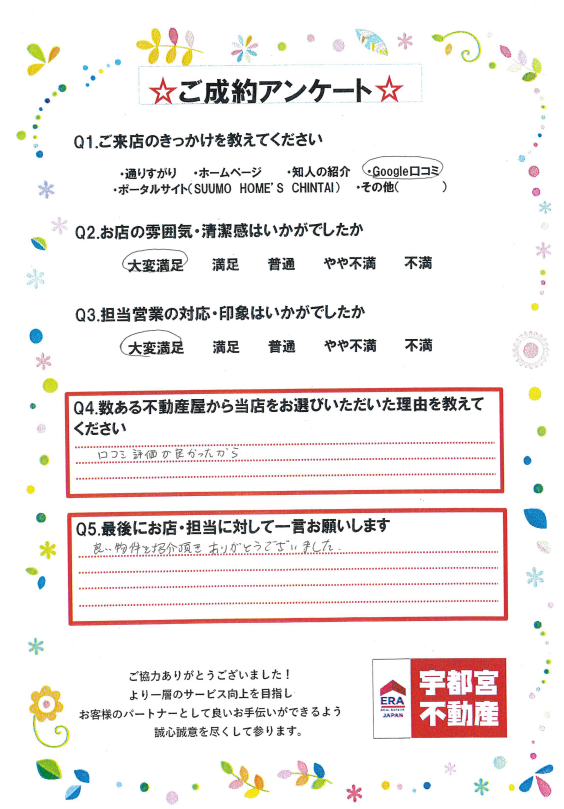 ☆ご成約アンケート☆
Q1.ご来店のきっかけを教えてください
・通りすがり ・ホームページ ・知人の紹介 ・Google口コミ
・ポータルサイト(SUUMO HOME'S CHINTAI) ・その他( )
Q2.お店の雰囲気・清潔感はいかがでしたか
大変満足 満足 普通 やや不満 不満
Q3.担当営業の対応・印象はいかがでしたか
大変満足 満足 普通 やや不満 不満
Q4.数ある不動産屋から当店をお選びいただいた理由を教えて
ください
口コミ評価が良かったから
Q5.最後にお店・担当に対して一言お願いします
良い物件を紹介頂きありがとうございました.
ご協力ありがとうございました！
より一層のサービス向上を目指し
お客様のパートナーとして良いお手伝いができるよう
誠心誠意を尽くして参ります。
ERA
REAL ESTATE
JAPAN
宇都宮
不動産